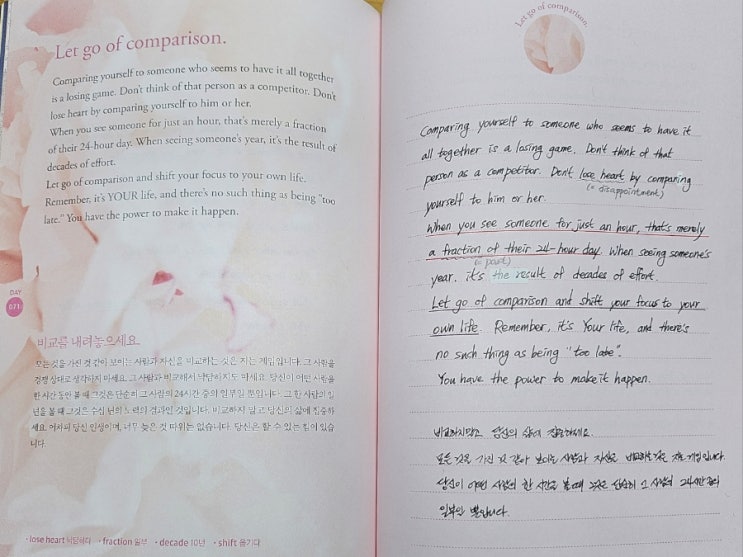 Let go of comparison.
Comparing yourself to someone who seems to have it all together
is a losing game. Don't think of that person as a competitor. Don't
lose heart by comparing yourself to him or her.
When you see someone for just an hour, that's merely a fraction
of their 24-hour day. When seeing someone's year, it's the result of
decades of effort.
Let go of comparison and shift your focus to your own life.
Remember, it's YOUR life, and there's no such thing as being "too
late." You have the power to make it happen.
DAY
071
비교를 내려놓으세요.
모든 것을 가진 것 같아 보이는 사람과 자신을 비교하는 것은 지는 게임입니다. 그 사람을
경쟁 상대로 생각하지 마세요. 그 사람과 비교해서 낙담하지도 마세요. 당신이 어떤 사람을
한 시간 동안 볼 때 그것은 단순히 그 사람의 24시간 중의 일부일 뿐입니다. 그 한 사람의 일
년을 볼 때 그것은 수십 년의 노력의 결과인 것입니다. 비교하지 말고 당신의 삶에 집중하
세요. 어차피 당신 인생이며, 너무 늦은 것 따위는 없습니다. 당신은 할 수 있는 힘이 있습
니다.
· lose heart 낙담하다 · fraction 일부 · decade 10년 · shift 옮기다
Let go of comparison.
Comparing yourself to someone who seems to have it
all together is a losing game. Don't think of that
person as a competitor. Don't lose heart by comparing
(= disappointment)
yourself to him or her.
When you see someone for just an hour, that's merely
a fraction of their 24-hour day. When seeing someone's
(= part)
year. it's the result of decades of effort.
Let go of comparison and shift your focus to your
own life. Remember, it's Your life, and there's
no such thing as being "too late".
You have the power to make it happen.
비교하지말고 당신의 삶에 집중하세요.
모든 것을 가진 것 같아 보이는 사람과 자신을 비교하는 것은 지는 게임입니다.
당신이 어떤 사람의 한 시간을 볼 때 그것은 단순히 그 사람의 24시간 중의
일부일 뿐입니다.